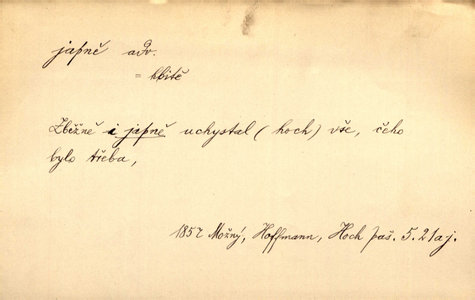 japně adv.
= hbitě
Zběžně i japně uchystal (hoch) vše, čeho
bylo třeba,
1857 Možný, Hoffmann, Hoch paš. 5. 21 aj.